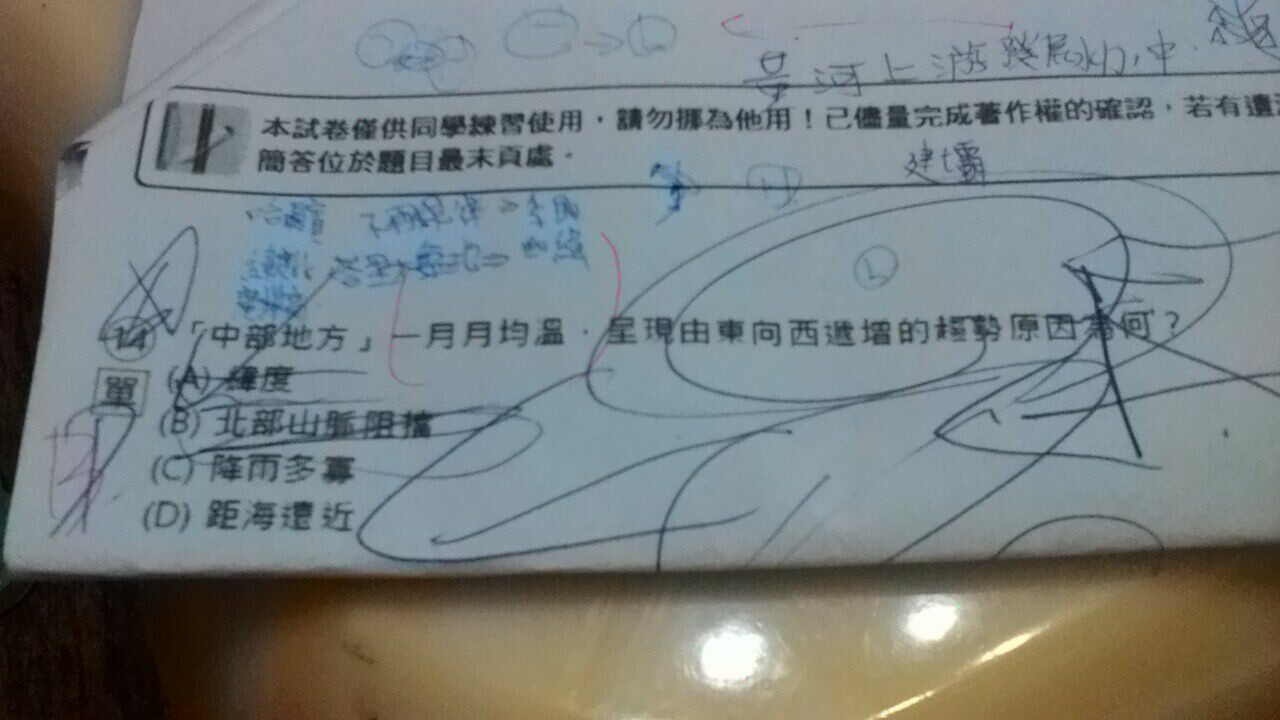 黃河上游發展水力,中.
本試卷僅供同學練習使用,請勿挪為他用!已儘量完成著作權的確認,若有遺
簡答位於題目最末頁處。
建壩
14 「中部地方」一月月均溫,呈現由東向西遞增的趨勢原因為何?
單 (A) 緯度
(B) 北部山脈阻擋
(C) 降雨多寡
(D) 距海遠近